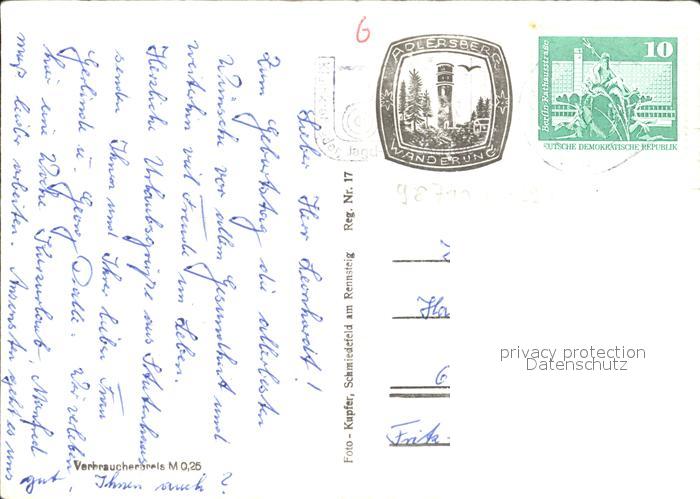 Lieber Herr Leonhardt!
Zum Geburtstag die allerbesten
Wünsche vor allem Gesundheit und
weiterhin viel Freude im Leben.
Herzliche Urlaubsgrüße aus Stutenhaus
senden Ihnen und Ihrer lieben Frau
Gerlinde u. Georg Wir verleben
hier eine Woche Kurzurlaub, Manfred
muß leider arbeiten. Ansonsten geht es uns
gut, Ihnen auch?
Verbraucherpreis M 0,25
Foto - Kupfer, Schmiedefeld am Rennsteig Reg. Nr. 17
6
ADLERSBERG
WANDERUNG
10
Berlin-Rathausstraße
DEUTSCHE DEMOKRATISCHE REPUBLIK
Fritz-
privacy protection
Datenschutz